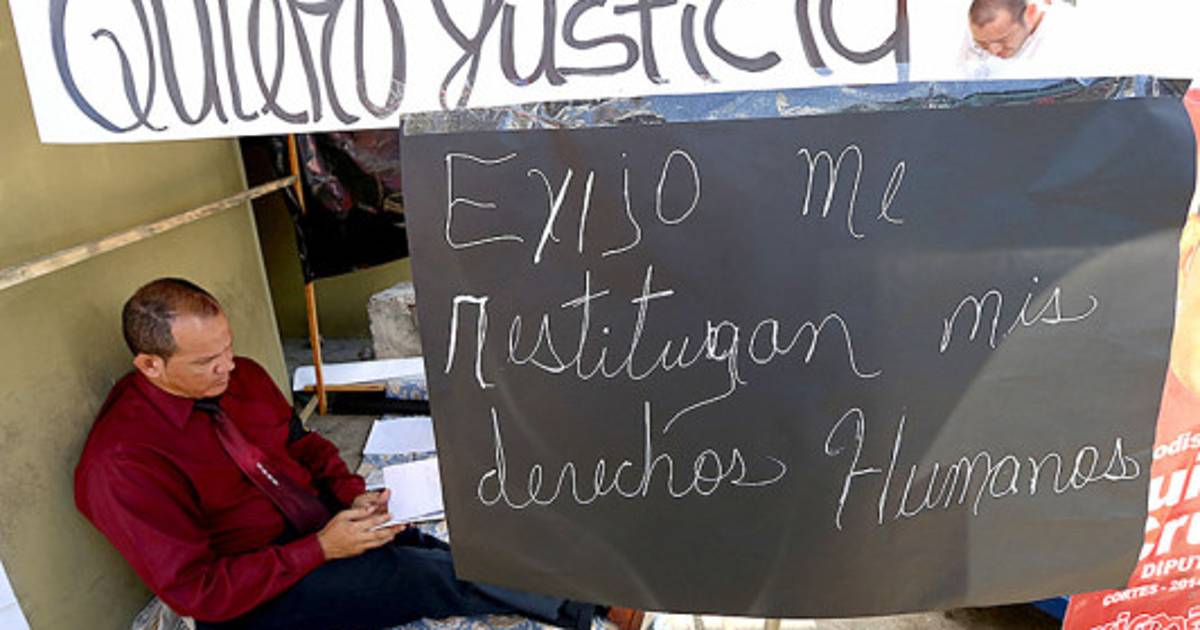 Quiero Justicia
Exijo me
restituyan mis
derechos Humanos
DIPUT
CORTES - 201